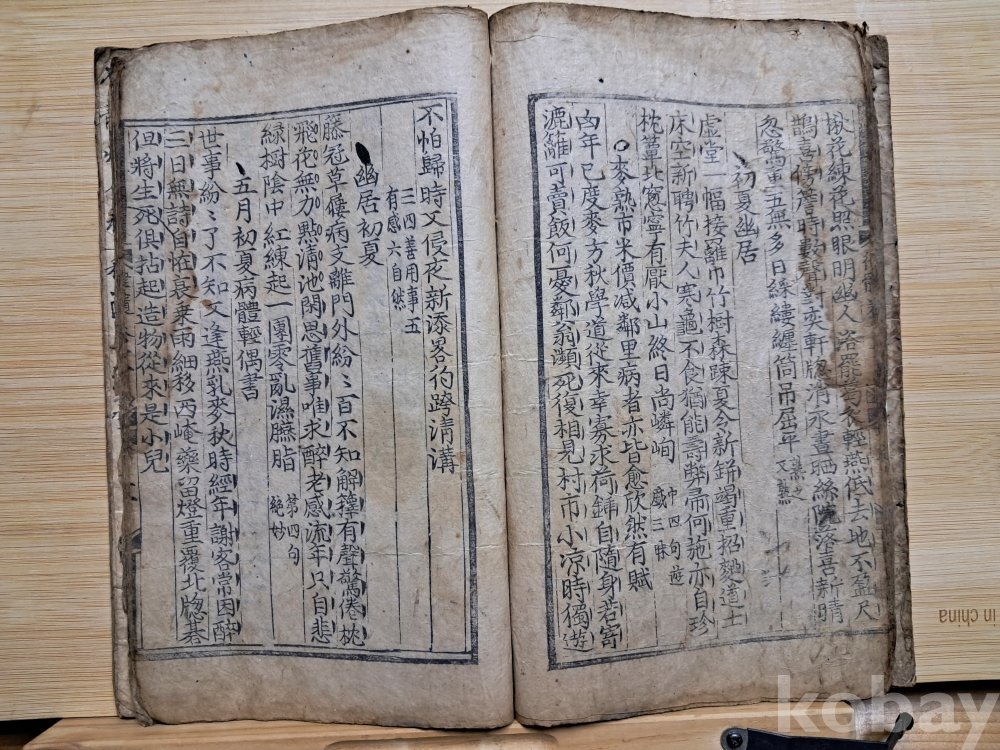 花練花照眼明幽人洛罷葛衣輕燕低去地不盈尺
鵲喜傍簷時數聲對奕軒牕消永晝晒絲院落喜新晴
忽驚重五無多日綵縷纏筒吊屈平
熟之
又熟
初夏幽居
虛堂一幅接䍦巾竹樹森踈夏令新鉼竭重招麴道士
床空新聘竹夫人寒龜不食猶能壽弊帚何施亦自珍
枕簟北窻寧有厭小山終日尚嶙峋
巾四句遊
戲三昧
麥熟市米價減鄰里病者亦皆愈欣然有賦
凶年已度麥方秋學道從來幸寡求荷鍤自隨身若寄
漉籬可賣飯何憂鄰翁瀕死復相見村市小涼時獨遊
不怕歸時又侵夜新添畧彴跨淸溝
三四善用事五
有感六自然
幽居初夏
籐冠草屨病支離門外紛〻百不知解籜有聲驚倦枕
飛花無力點淸池閑思舊事唯求醉老感流年只自悲
綠樹陰中紅練起一團零亂濕臙脂
第四句
絶妙
五月初夏病體輕偶書
世事紛〻了不知又逢燕乳麥秋時經年謝客常因醉
三日無詩自怪衰乘雨細移西崦藥留燈重覆北牕碁
但將生死俱拈起造物從來是小兒
in china
kobay